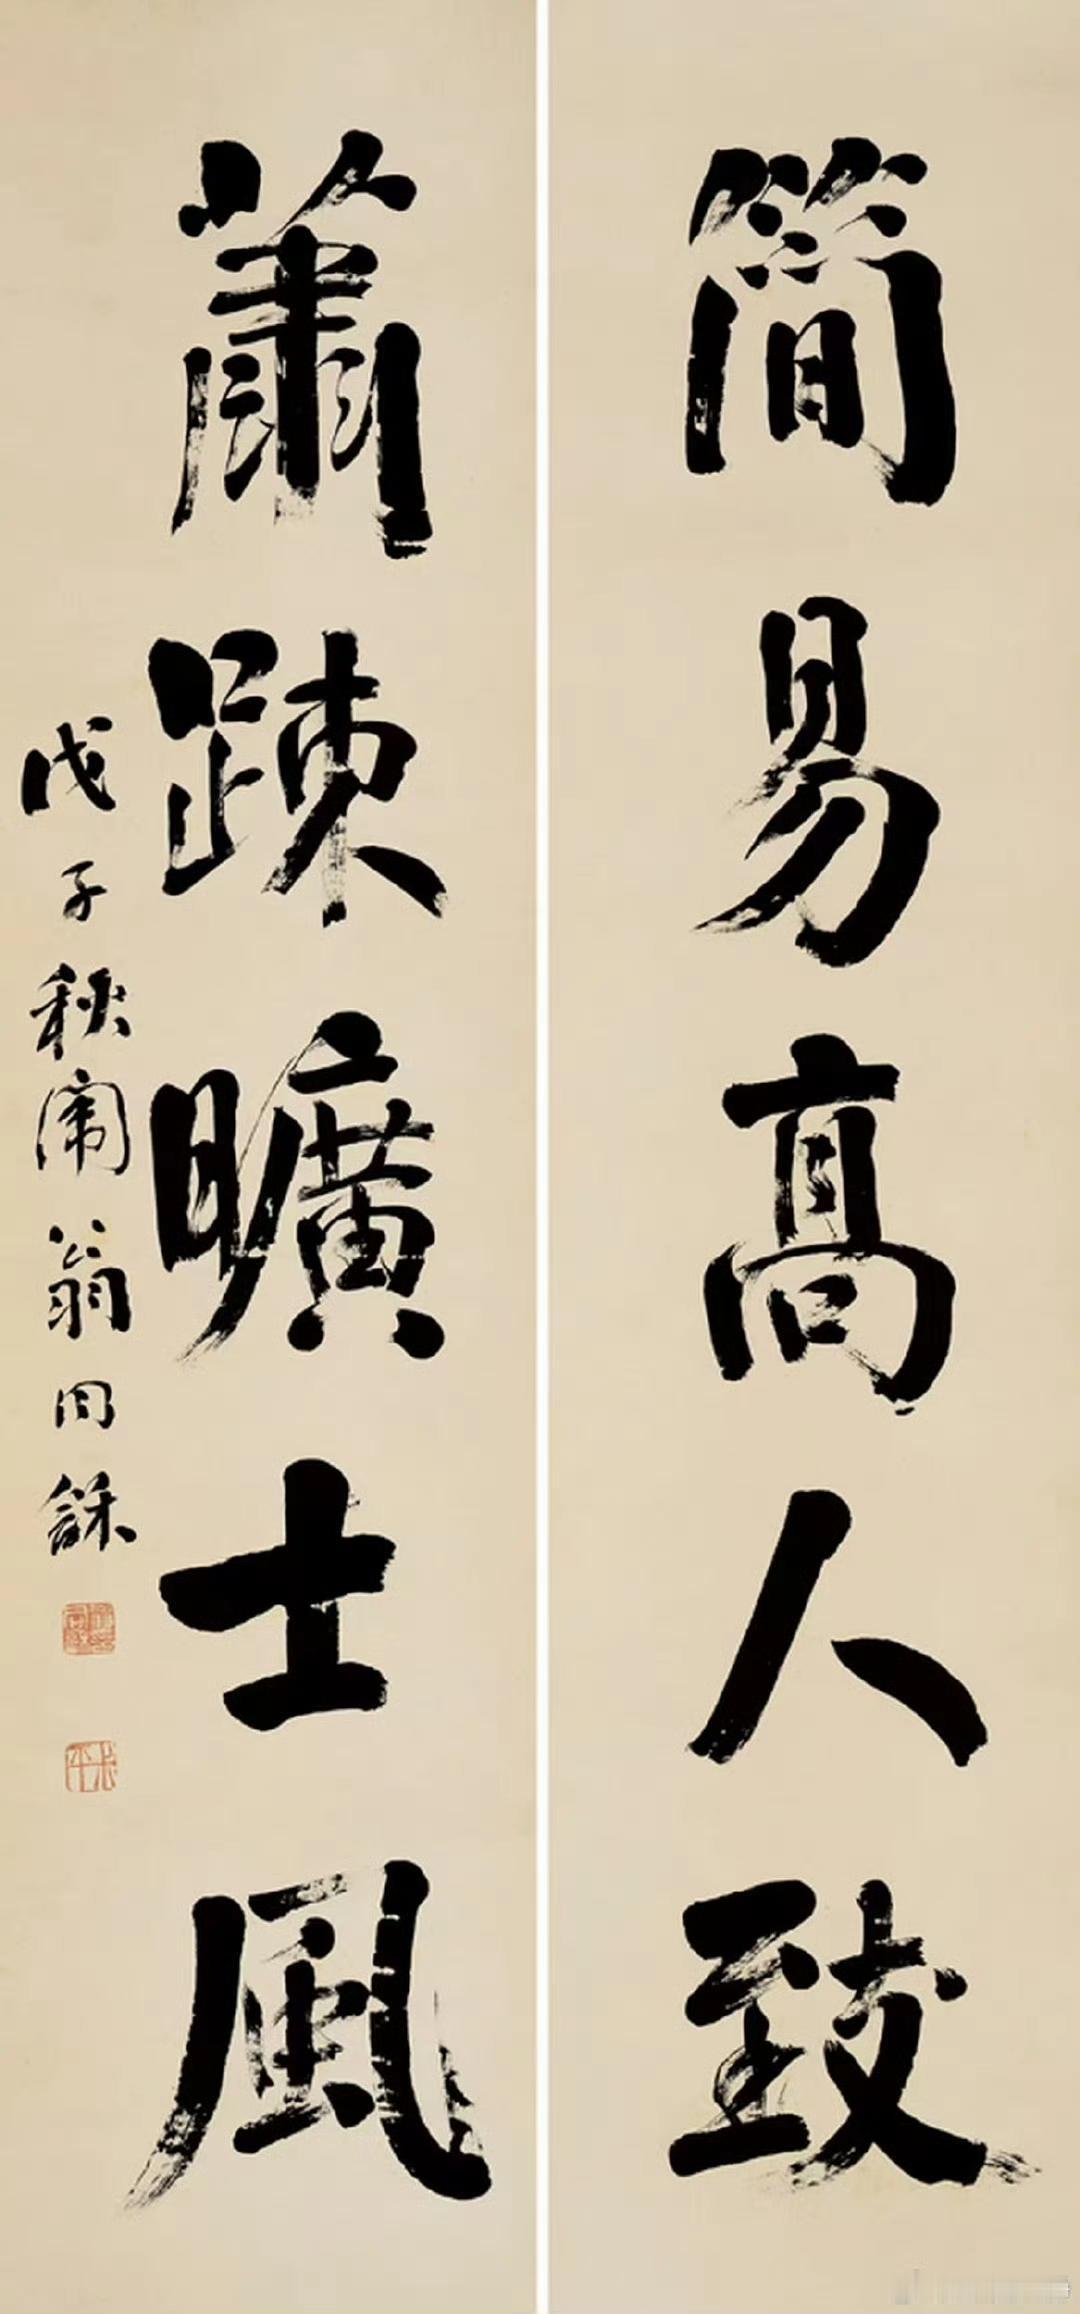 簡易高人致
蕭疎曠士風
戊子秋闹翁同龢